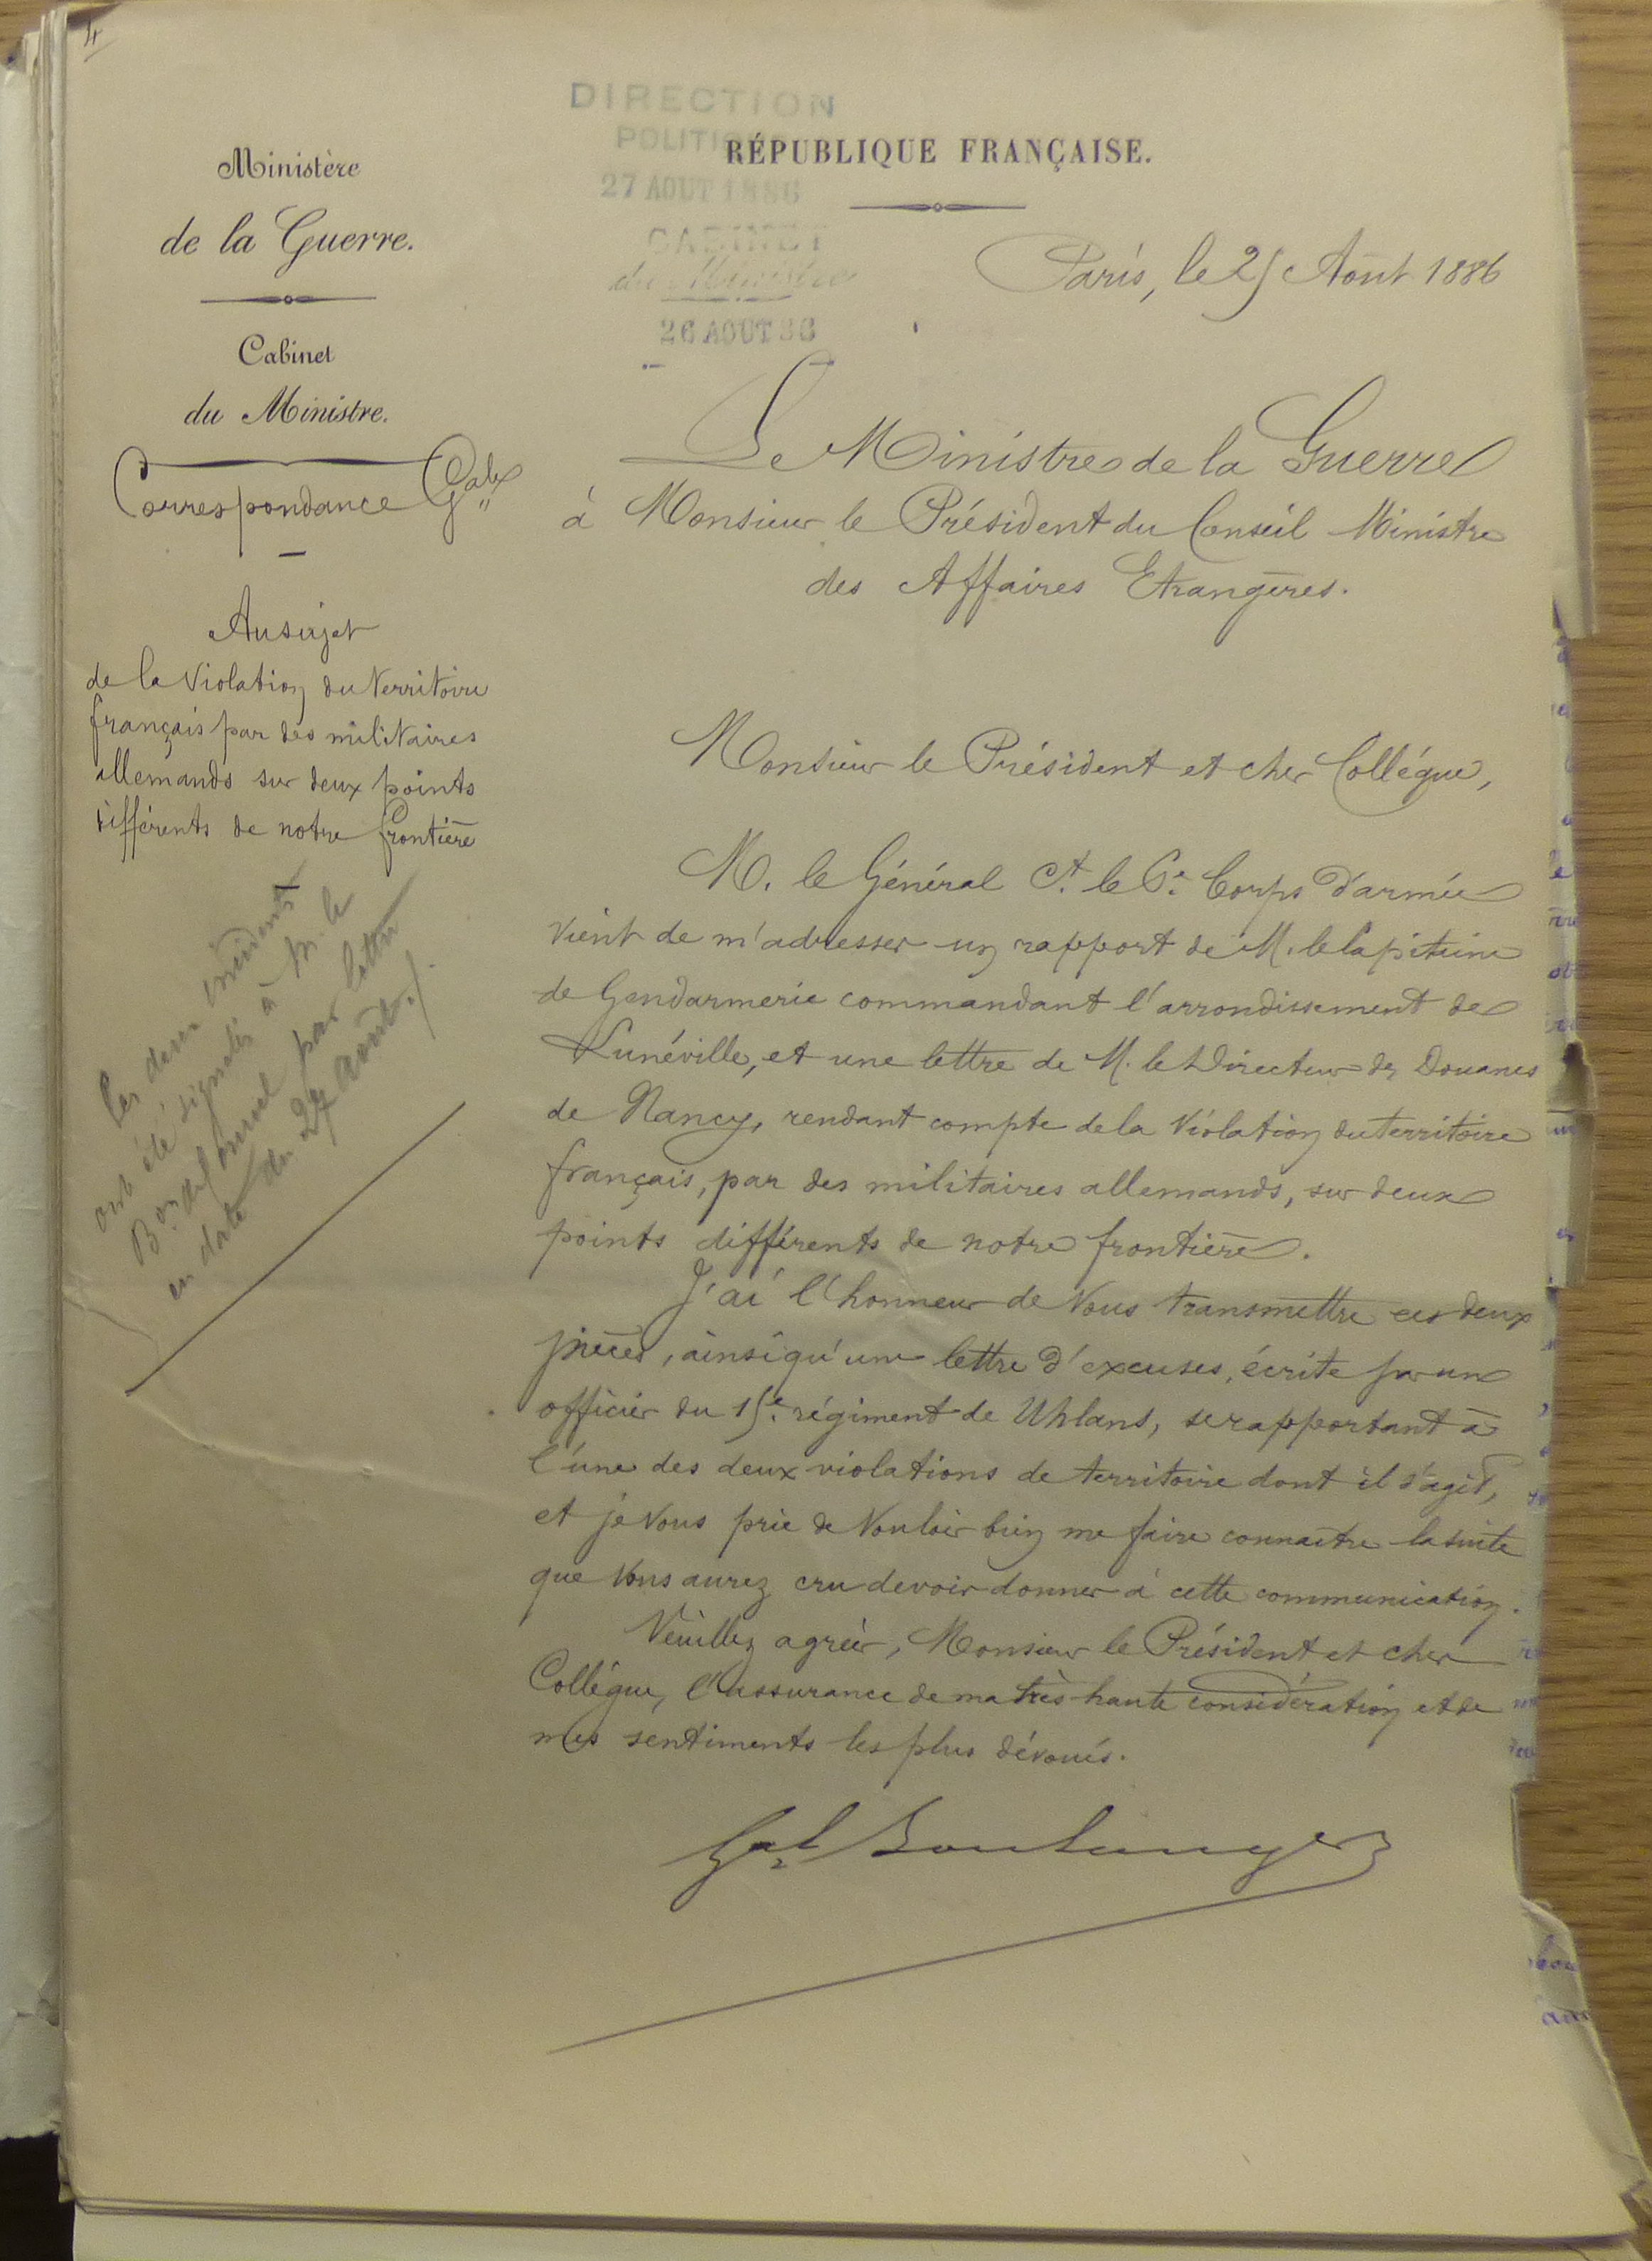 DIRECTION
POLITIQUE
27 AOUT 1886
CABINET
du Ministre
26 AOUT 86
RÉPUBLIQUE FRANÇAISE.
Ministère
de la Guerre.
Cabinet
du Ministre.
Correspondance Gale
Au sujet
de la Violation du territoire
français par des militaires
allemands sur deux points
différents de notre frontière
Ces deux incidents
ont été signalés à M. le
Bon par lettre
en date du 27 août ./.
Paris, le 25 Août 1886
Le Ministre de la Guerre
à Monsieur le Président du Conseil Ministre
des Affaires Etrangères.
Monsieur le Président et cher Collégue,
M. le Général Ct. le 6e. Corps d'armée
vient de m'adresser un rapport de M. le Capitaine
de Gendarmerie commandant l'arrondissement de
Lunéville, et une lettre de M. le Directeur des Douanes
de Nancy, rendant compte de la Violation du territoire
français, par des militaires allemands, sur deux
points différents de notre frontière.
J'ai l'honneur de Vous transmettre ces deux
pièces, ainsi qu'une lettre d'excuses, écrite par un
officier du 15e. régiment de Uhlans, se rapportant à
l'une des deux violations de territoire dont il s'agit,
et je Vous prie de Vouloir bien me faire connaître la suite
que Vous aurez cru devoir donner à cette communication.
Veuillez agréer, Monsieur le Président et cher
Collégue, l'assurance de ma très haute considération et de
mes sentiments les plus dévoués.
Gal Boulanger